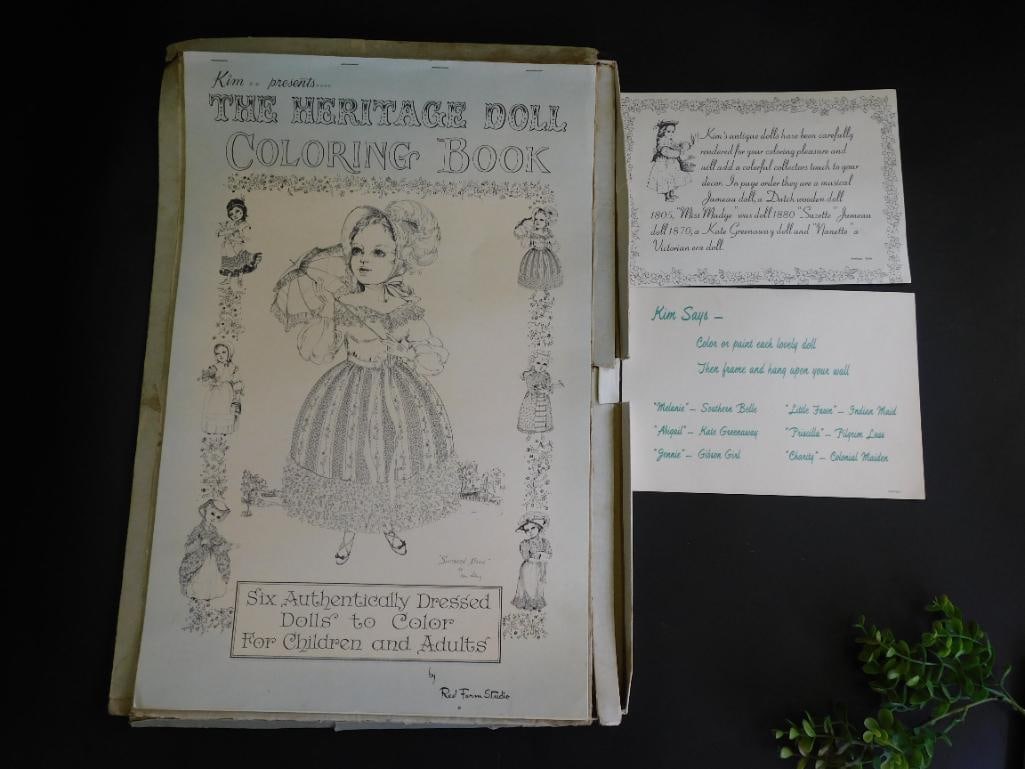 Kim .. presents....
THE HERITAGE DOLL
COLORING BOOK
"Southern Belle"
by
Six Authentically Dressed
Dolls to Color
For Children and Adults
by
Red Farm Studio
Kim's antique dolls have been carefully
rendered for your coloring pleasure and
will add a colorful collectors touch to your
decor. In page order they are a musical
Jumeau doll, a Dutch wooden doll
1805, "Miss Madge" wax doll 1880 "Suzette" Jumeau
doll 1870, a Kate Greenaway doll and "Nanette" a
Victorian era doll.
Kim Says –
Color or paint each lovely doll
Then frame and hang upon your wall
"Melanie" – Southern Belle "Little Fawn" – Indian Maid
"Abigail" – Kate Greenaway "Priscilla" – Pilgrim Lass
"Jennie" – Gibson Girl "Charity" – Colonial Maiden